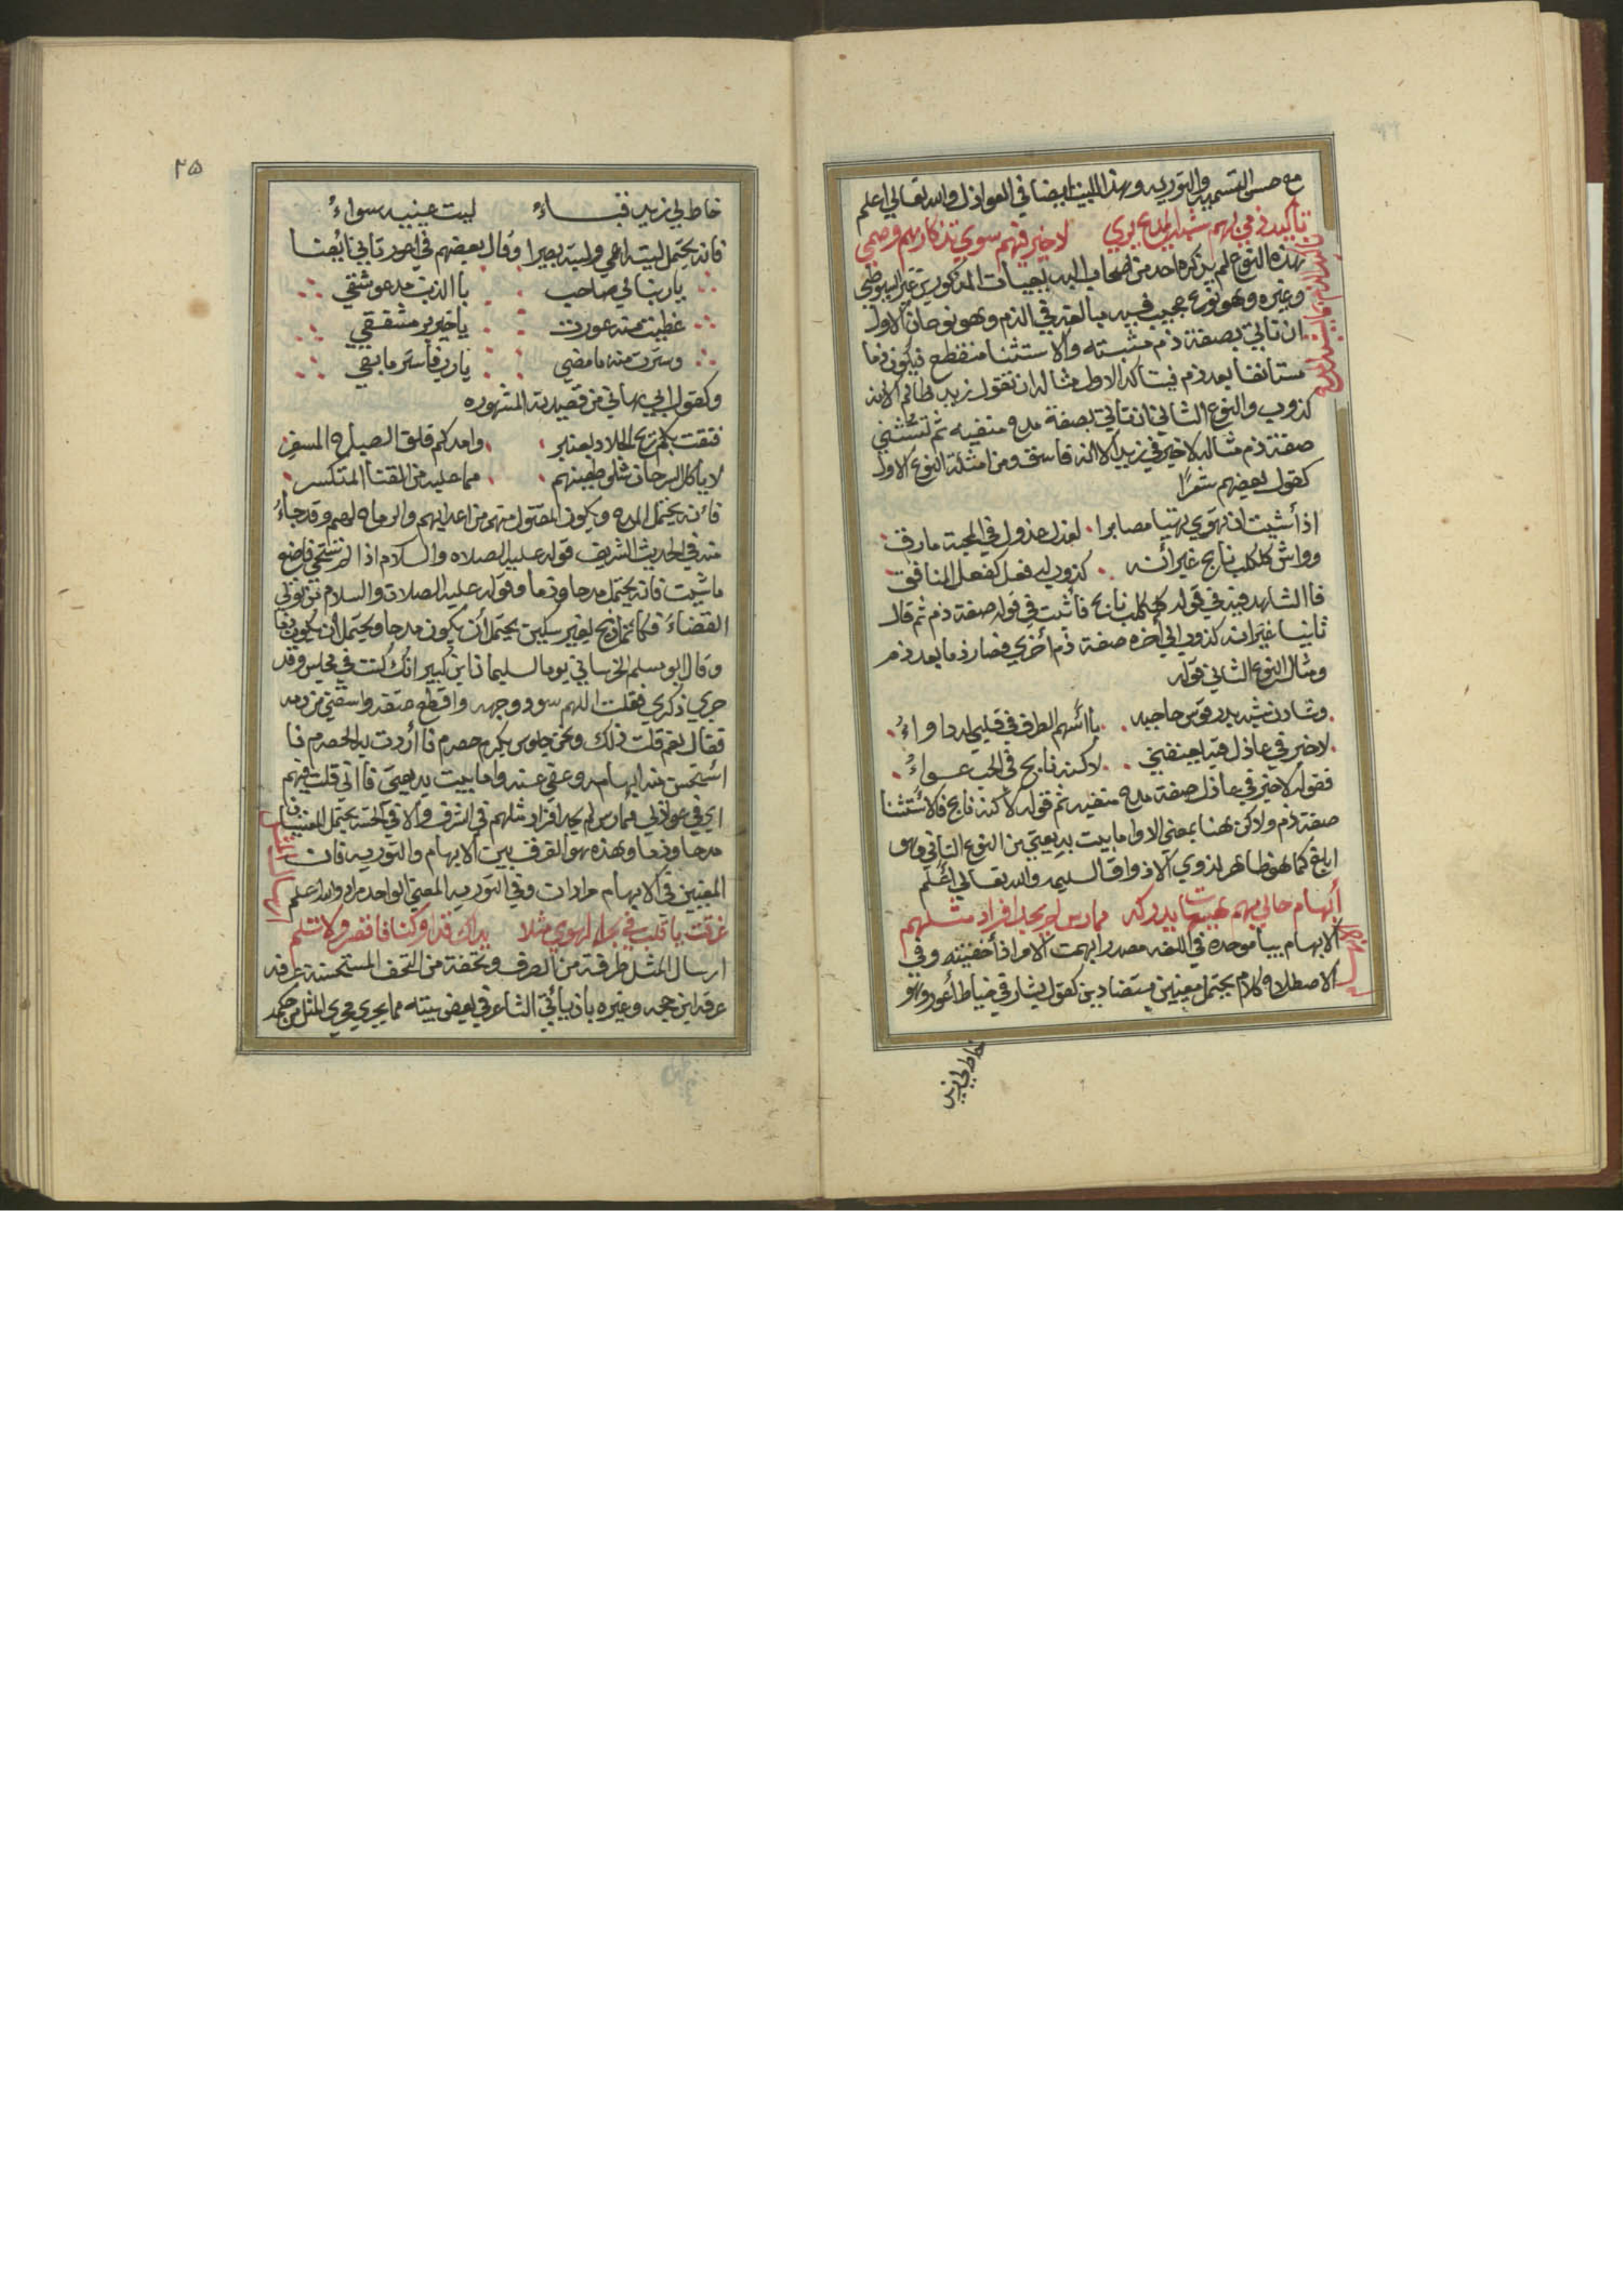 مع حسن التسميه والتوريه وهذا البيت ايضا في العواذل والله تعالي اعلم
تأكيد ذمي لهم شبه المدح يري لا خير فيهم سوي تذكارهم وصمي
هذه النوع لم يذكره احد من اصحاب البديعيات المذكورين غير السيوطي
وغيره وهو نوع عجيب فيه مبالغة في الذم وهو نوعان الاول
ان تاتي بصفة ذم مثبته والاستثنا منقطع فيكون ذما
مستانفا بعد ذم فيتاكد الاول مثاله ان تقول زيد ظالم الا انه
كذوب والنوع الثاني ان تاتي بصفة مدح منفيه ثم تستثني
صفة ذم مثاله لا خير في زيد الا انه فاسق ومن امثلة النوع الاول
كقول بعضهم شعرًا
اذا شيت ان تهوي تهيا مصابرا لعذل عذول في المحبة مارق
وواش كلكلب نابح غير أنه كذوب له فعل كفعل المنافق
فالشاهد فيه في قوله كلكلب نابح فأثبت في قوله صفة ذم ثم قال
ثانيا غير انه كذوب الي آخره صفة ذم أخري فصار ذما بعد ذم
ومثال النوع الثاني قوله
وشادن شد يدر قوس حاجبه يا أسهم الطرف في قلبي له داواءُ
لا خير في عاذل فيه يعنفني لاكنه نابح في الحب عواءُ
فقوله لا خير في عاذل صفة مدح منفيه ثم قوله لاكنه نابح فالاستثنا
صفة ذم ولاكن هنا بمعني الا واما بيت بديعيتي من النوع الثاني وهو
ابلغ كما هو ظاهر لذوي الاذواق السليمه والله تعالي أعلم
أبهام حالي بهم هيهات يدركه ممارس لم يجد افراد مثلهم
الابهام ببا موحدة في اللغه مصدر ابهمت الامر اذا أخفيته وفي
الاصطلاح كلام يحتمل معنيين متضادين كقول بشار في خياط أعور وهو
خاط لي زيد
٢٥
خاط لي زيد قباءُ ليت عينيه سواءُ
فانه يحتمل ليته اعمي وليته بصيرا وقال بعضهم في احدب تاني ايضا
يا رب اني صاحب بالذنب مدعو شقي
غطيت منه عورت يا خير بر مشفقي
وسترت منه ما مضي يا رب فاستر ما بقي
وكقول ابي هاني من قصيدته المشهوره
فتقت لكم ريح الجلاد بعنبر وامدكم فلق الصباح المسفر
لا ياكل السرحان شلو طعينهم مما عليه من القنا المتكسر
فانه يحتمل المدح ويكون المقتول منهم من اعدايهم والرماح لهم وقد جاءُ
منه في الحديث الشريف قوله عليه الصلاه والسلام اذا لم تستحي فاصنع
ما شيت فانه يحتمل مدحا وذما وقوله عليه الصلاة والسلام من تولي
القضاء فكانما ذبح بغير سكين يحتمل أن يكون مدحا ويحتمل أن يكون ذما
وقال ابو مسلم الخرساني يوما لسليمان ابن كبير انك كنت في مجلس وقد
جري ذكري فقلت اللهم سود وجهه واقطع عنقه واسقني من دمه
فقال نعم قلت ذلك ونحن جلوس بكرم حصرم فا أردت به الحصرم فا
استحسن منه ابهامه وعفي عنه واما بيت بديعيتي فا اني قلت فيهم
اي في عواذلي ممارس لم يجد افراد مثلهم في الشرف والا في الخسة يحتمل المعنيين
مدحا وذما وهذه هو الفرق بين الابهام والتوريه فان
المعنيين في الابهام مرادان وفي التوريه المعني الواحد مراد والله اعلم
ارسال المثل
غرقت يا قلب في بحر الهوي مثلا بداك قد اوكتا فا قصر ولا تلم
ارسال المثل طرفة من الطرف وتحفة من التحف المستحسنة عرفه
عرفه ابن حجه وغيره بان يأتي الشاعر في بعض بيته مما يجري مجري المثل من حكمه